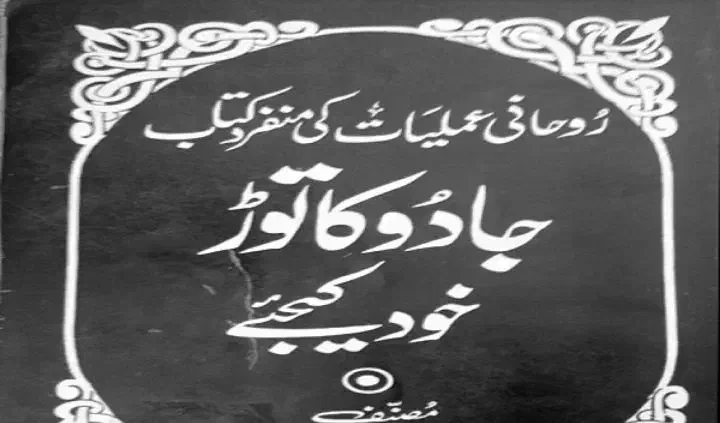 رُوحانی عملیات کی منفرد کتاب
جادُو کا توڑ
خود کیجئے
مصنّف